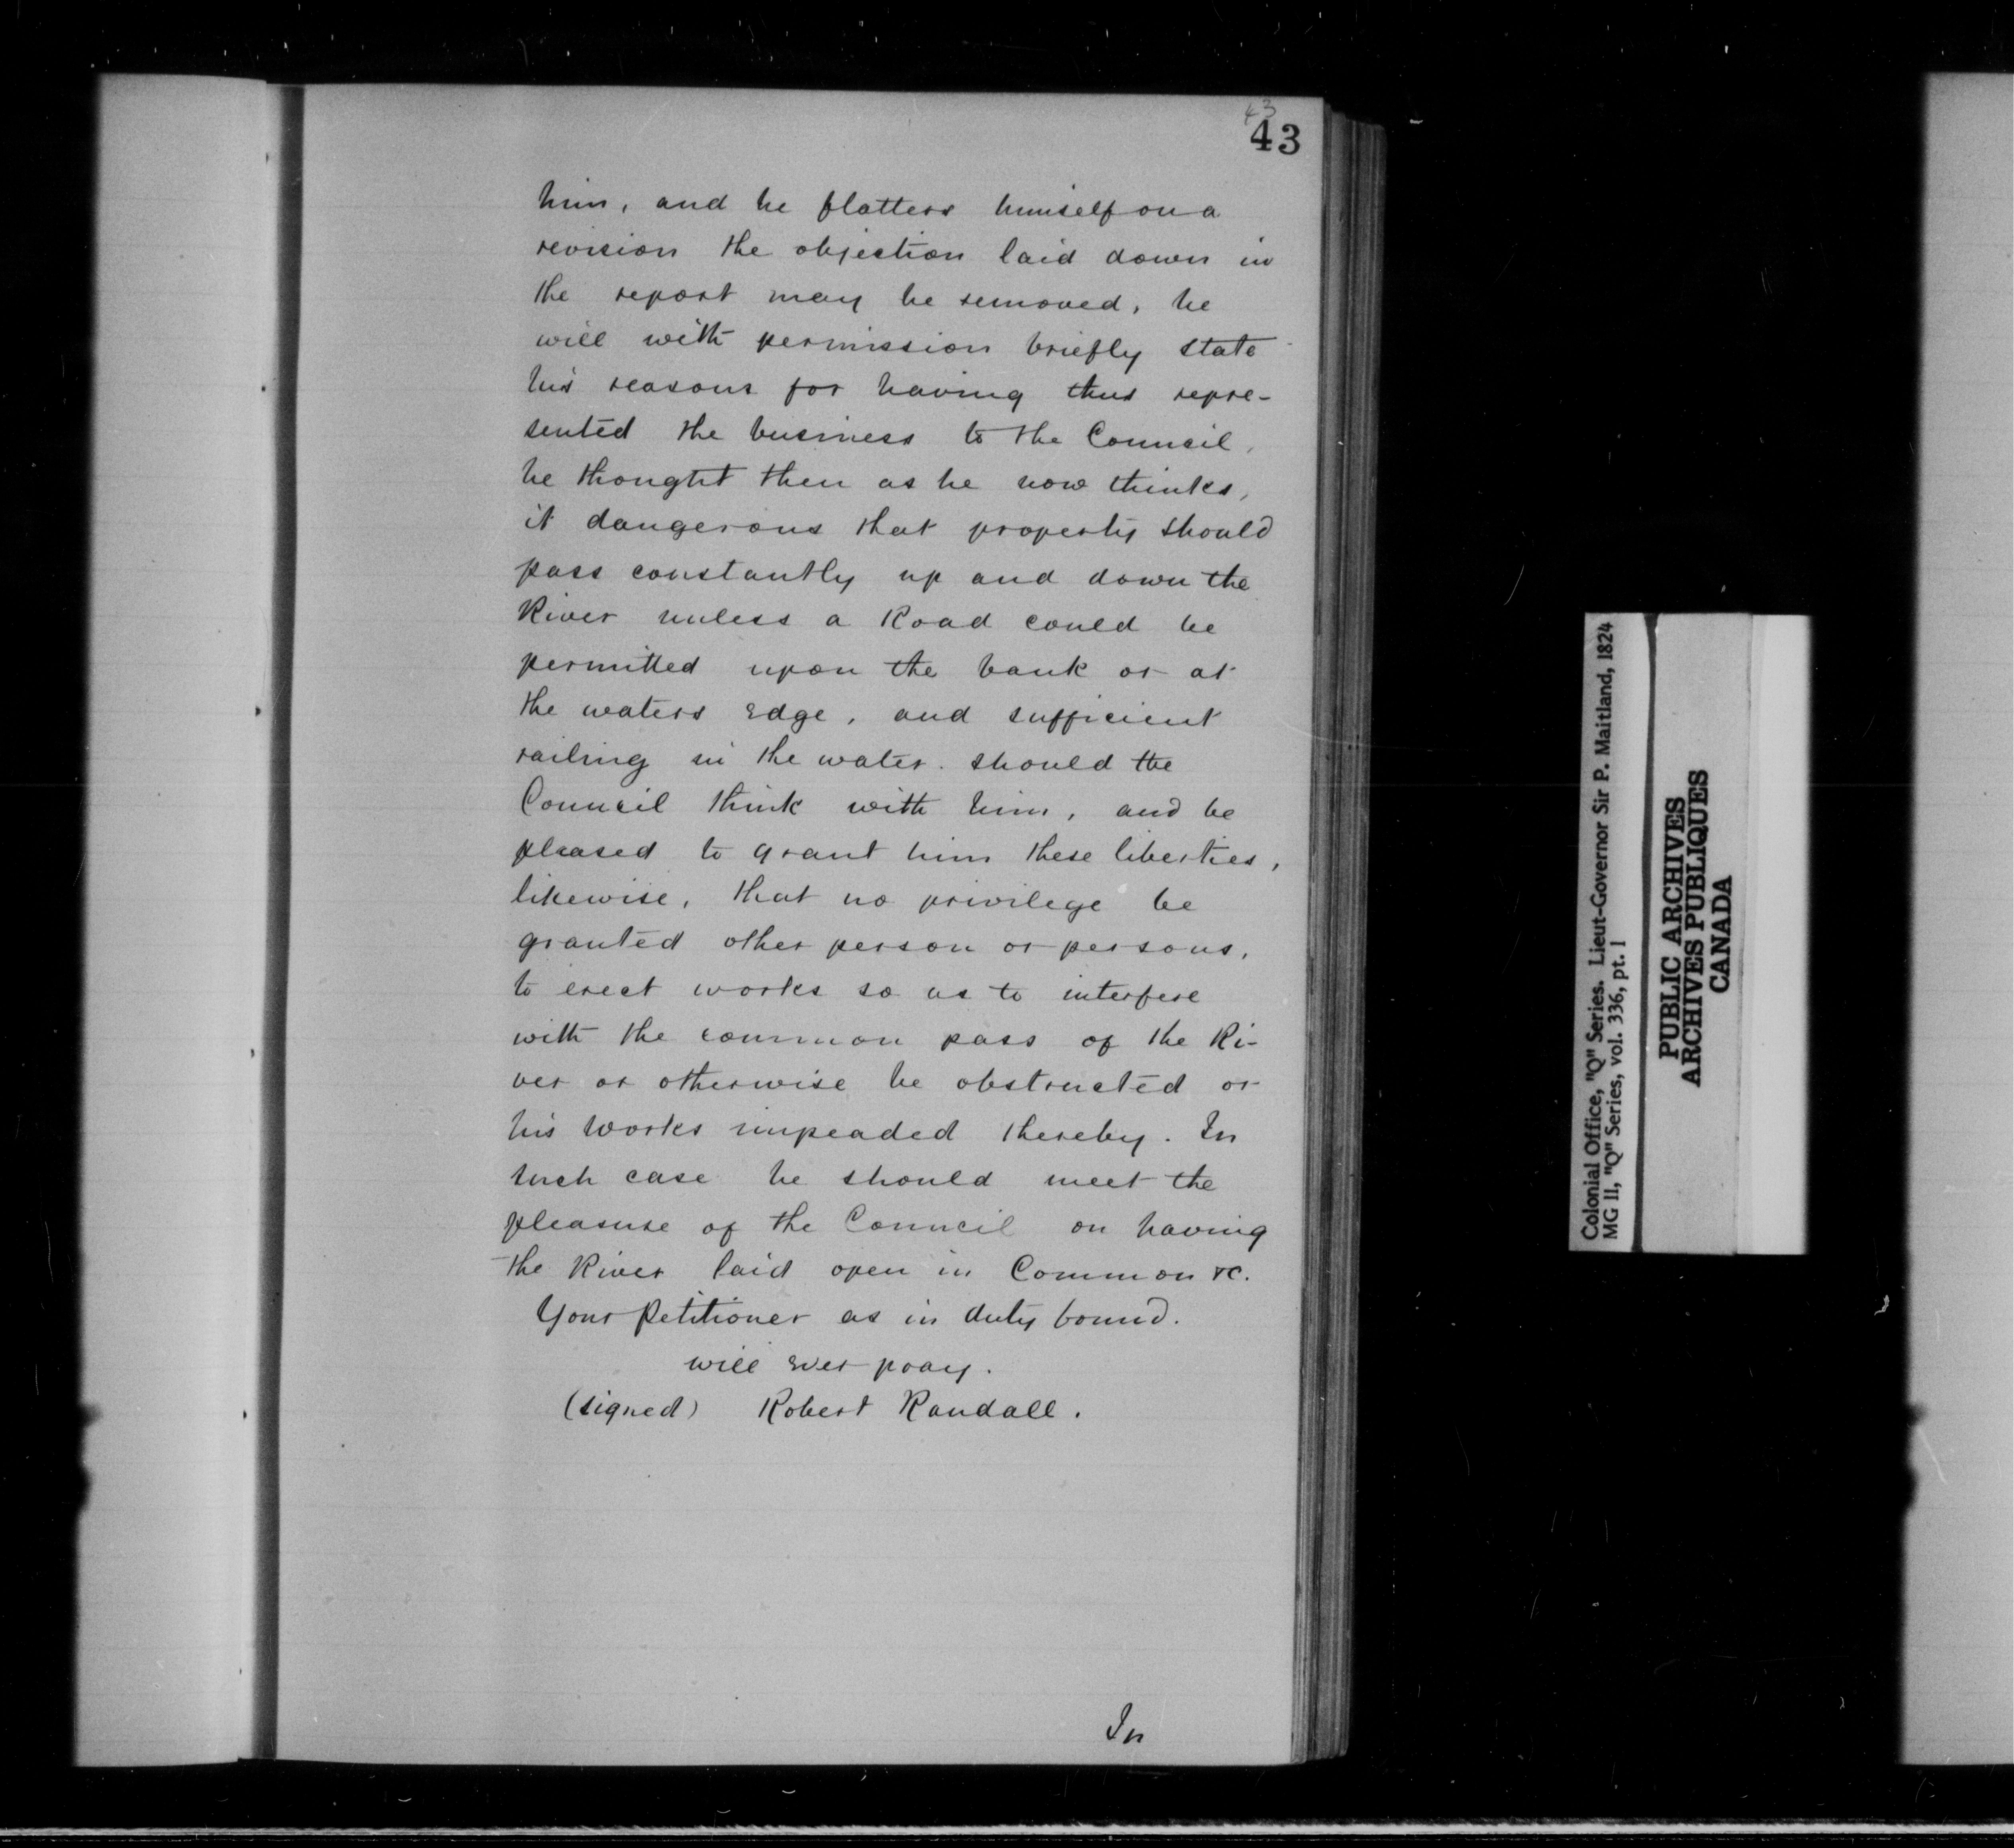 43
43
him, and he flatters himself on a
revision the objection laid down in
the report may be removed, he
will with permission briefly state
his reasons for having thus repre-
sented the business to the Council,
he thought then as he now thinks,
it dangerous that property should
pass constantly up and down the
River unless a Road could be
permitted upon the bank or at
the waters edge, and sufficient
railing in the water. should the
Council think with him, and be
pleased to grant him these liberties,
likewise, that no privilege be
granted other person or persons,
to erect works so as to interfere
with the common pass of the Ri-
ver or otherwise be obstructed or
his works impeaded thereby. In
such case he should meet the
pleasure of the Council on having
the River laid open in Common &c.
Your Petitioner as in duty bound.
will ever pray.
(signed) Robert Randall.
In
Colonial Office, "Q" Series. Lieut-Governor Sir P. Maitland, 1824
MG 11, "Q" Series, vol. 336, pt. 1
PUBLIC ARCHIVES
ARCHIVES PUBLIQUES
CANADA